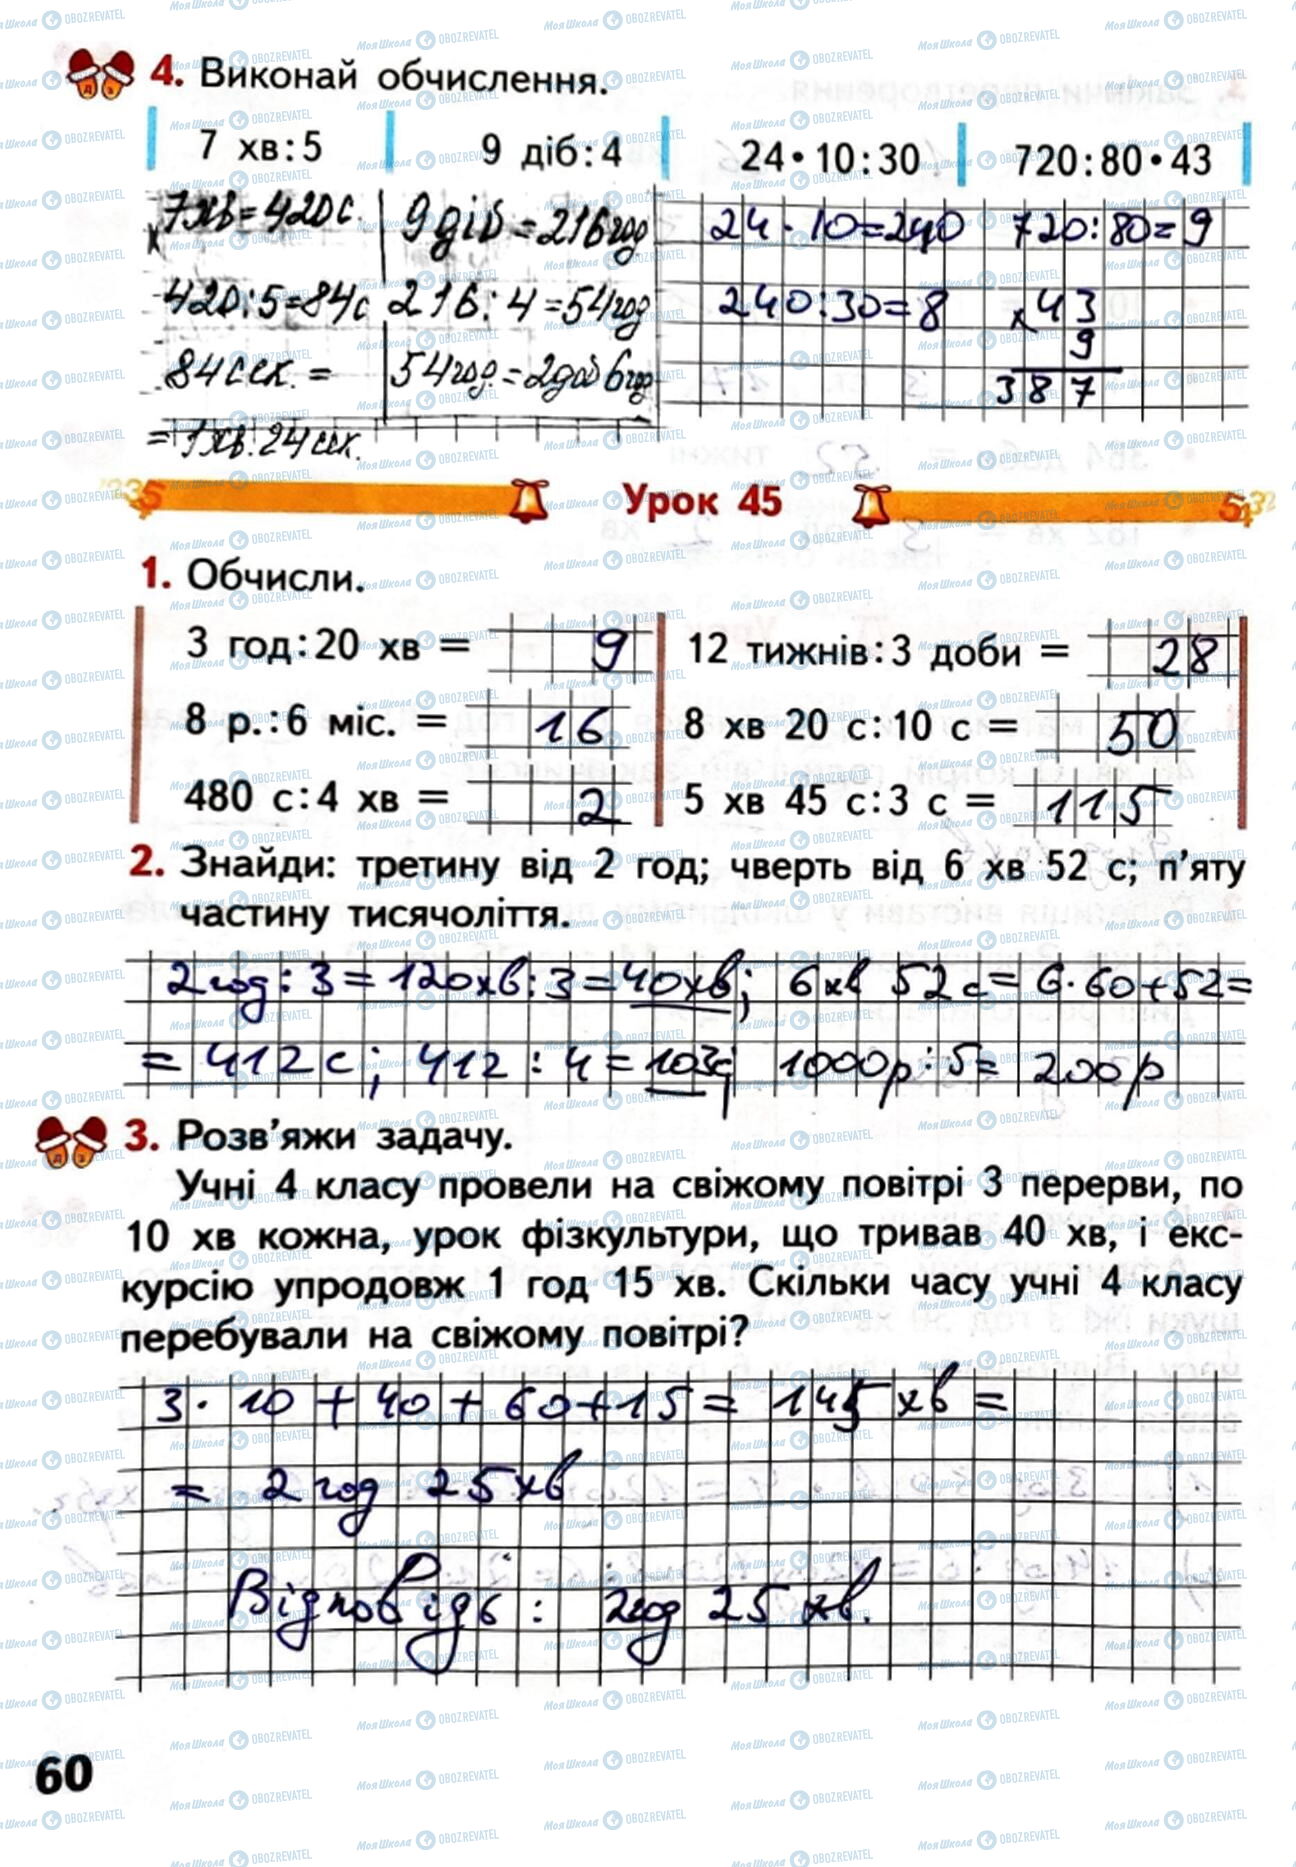 4. Виконай обчислення.
7 хв:5 9 діб:4 24•10:30 720:80•43
7хв=420с. 9діб=216год 24·10=240 720:80=9
420:5=84с 216:4=54год 240:30=8 ×43
9
84сек.= 54год.=2доб 6год 387
=1хв.24сек.
Урок 45
1. Обчисли.
3 год:20 хв = 9 12 тижнів:3 доби = 28
8 р.:6 міс. = 16 8 хв 20 с:10 с = 50
480 с:4 хв = 2 5 хв 45 с:3 с = 115
2. Знайди: третину від 2 год; чверть від 6 хв 52 с; п'яту
частину тисячоліття.
2год:3=120хв:3=40хв; 6хв 52с=6·60+52=
=412с; 412:4=103с; 1000р:5=200р
3. Розв'яжи задачу.
Учні 4 класу провели на свіжому повітрі 3 перерви, по
10 хв кожна, урок фізкультури, що тривав 40 хв, і екс-
курсію упродовж 1 год 15 хв. Скільки часу учні 4 класу
перебували на свіжому повітрі?
3·10+40+60+15=145хв=
=2год 25хв
Відповідь: 2год 25хв.
60
МояШкола OBOZREVATEL